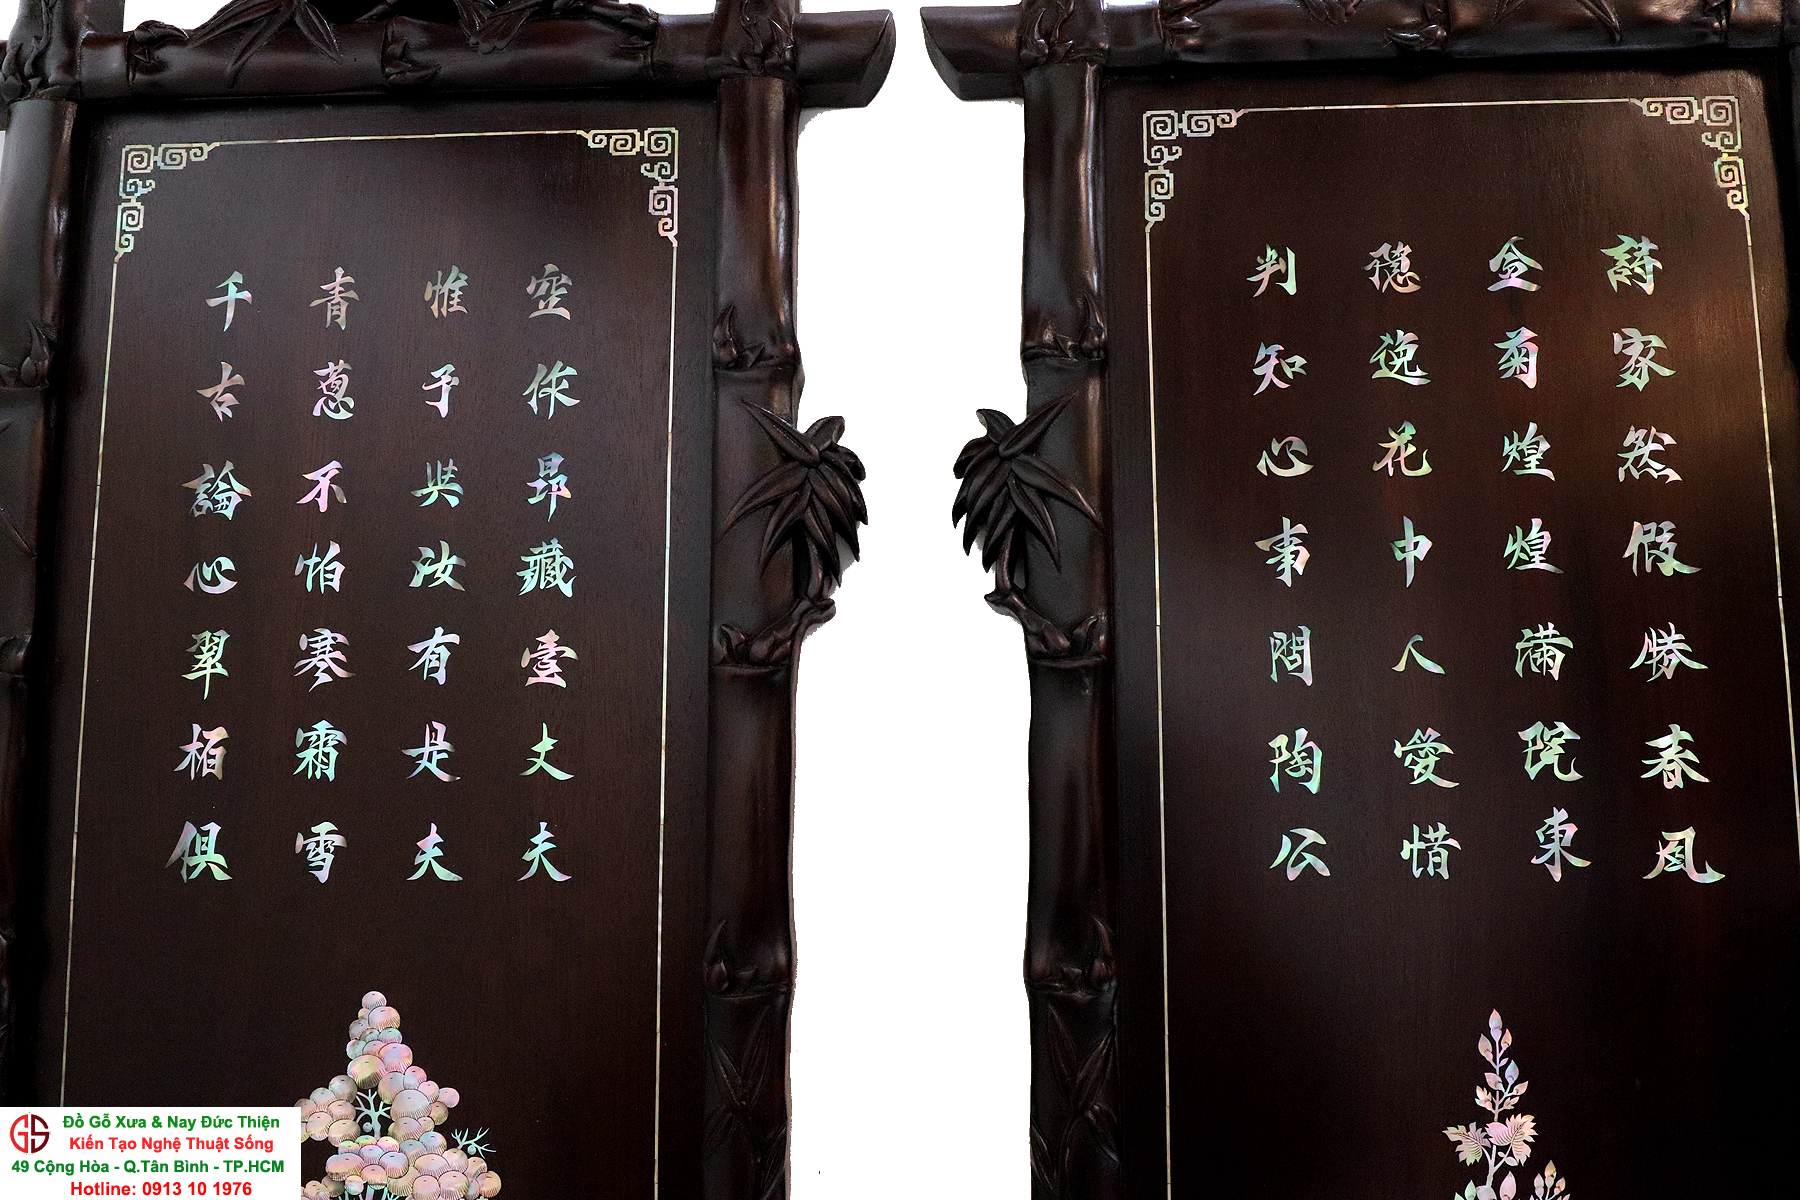 詩家然假勝春風
金菊煌煌满院東
穏逸花中人愛惜
判知心事問陶公
空作昂藏壹丈夫
惟予與汝有是夫
青蔥不怕寒霜雪
千古論心翠栢俱
GS
Đồ Gỗ Xưa & Nay Đức Thiện
Kiến Tạo Nghệ Thuật Sống
49 Cộng Hòa - Q.Tân Bình - TP.HCM
Hotline: 0913 10 1976